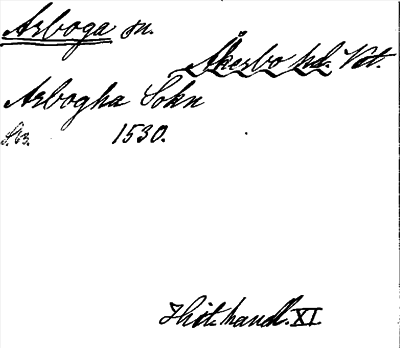 Arboga sn.
Åkerbo hd. Vstl.
Arbogha Sokn
S. 63. 1530.
Hist. handl. XI